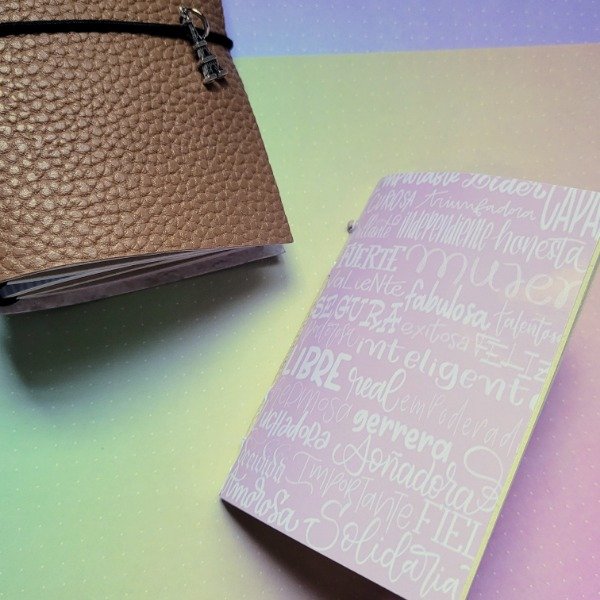 imparable Líder
triunfadora CAPA
independiente honesta
FUERTE mujer
VALIENTE fabulosa talentosa
SEGURA exitosa FELIZ
inteligente
LIBRE real empoderad
gerrera
Soñadora
Importante FIEL
Amorosa Solidaria